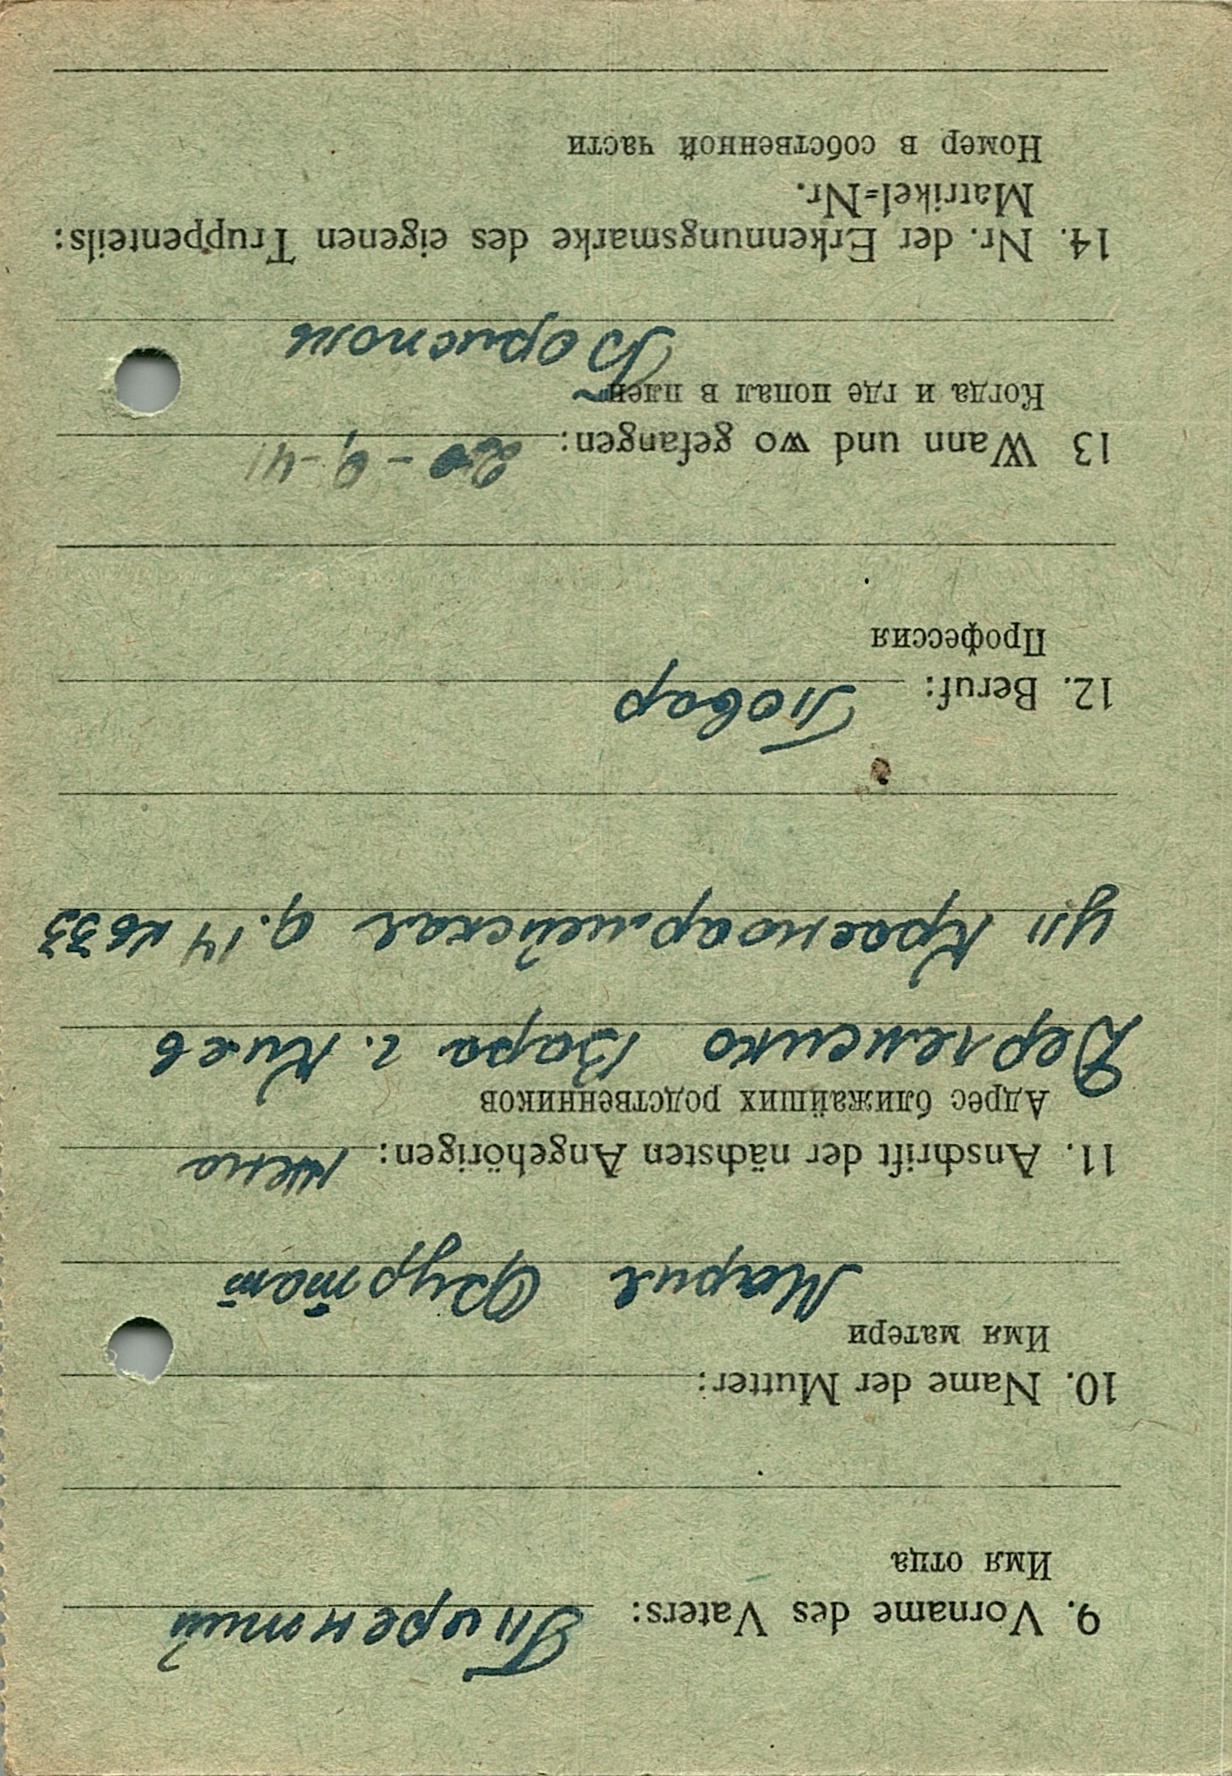 9. Vorname des Vaters: Тирентий
Имя отца
10. Name der Mutter:
Имя матери
Мария Фуртат
11. Anschrift der nächsten Angehörigen: жена
Адрес ближайших родственников
Вара г. Киев
ул Красноармейская д. 14 кв 33
12. Beruf: Повар
Профессия
13 Wann und wo gefangen: 20-9-41
Когда и где попал в плен
Борисполь
14. Nr. der Erkennungsmarke des eigenen Truppenteils:
Matrikel=Nr.
Номер в собственной части